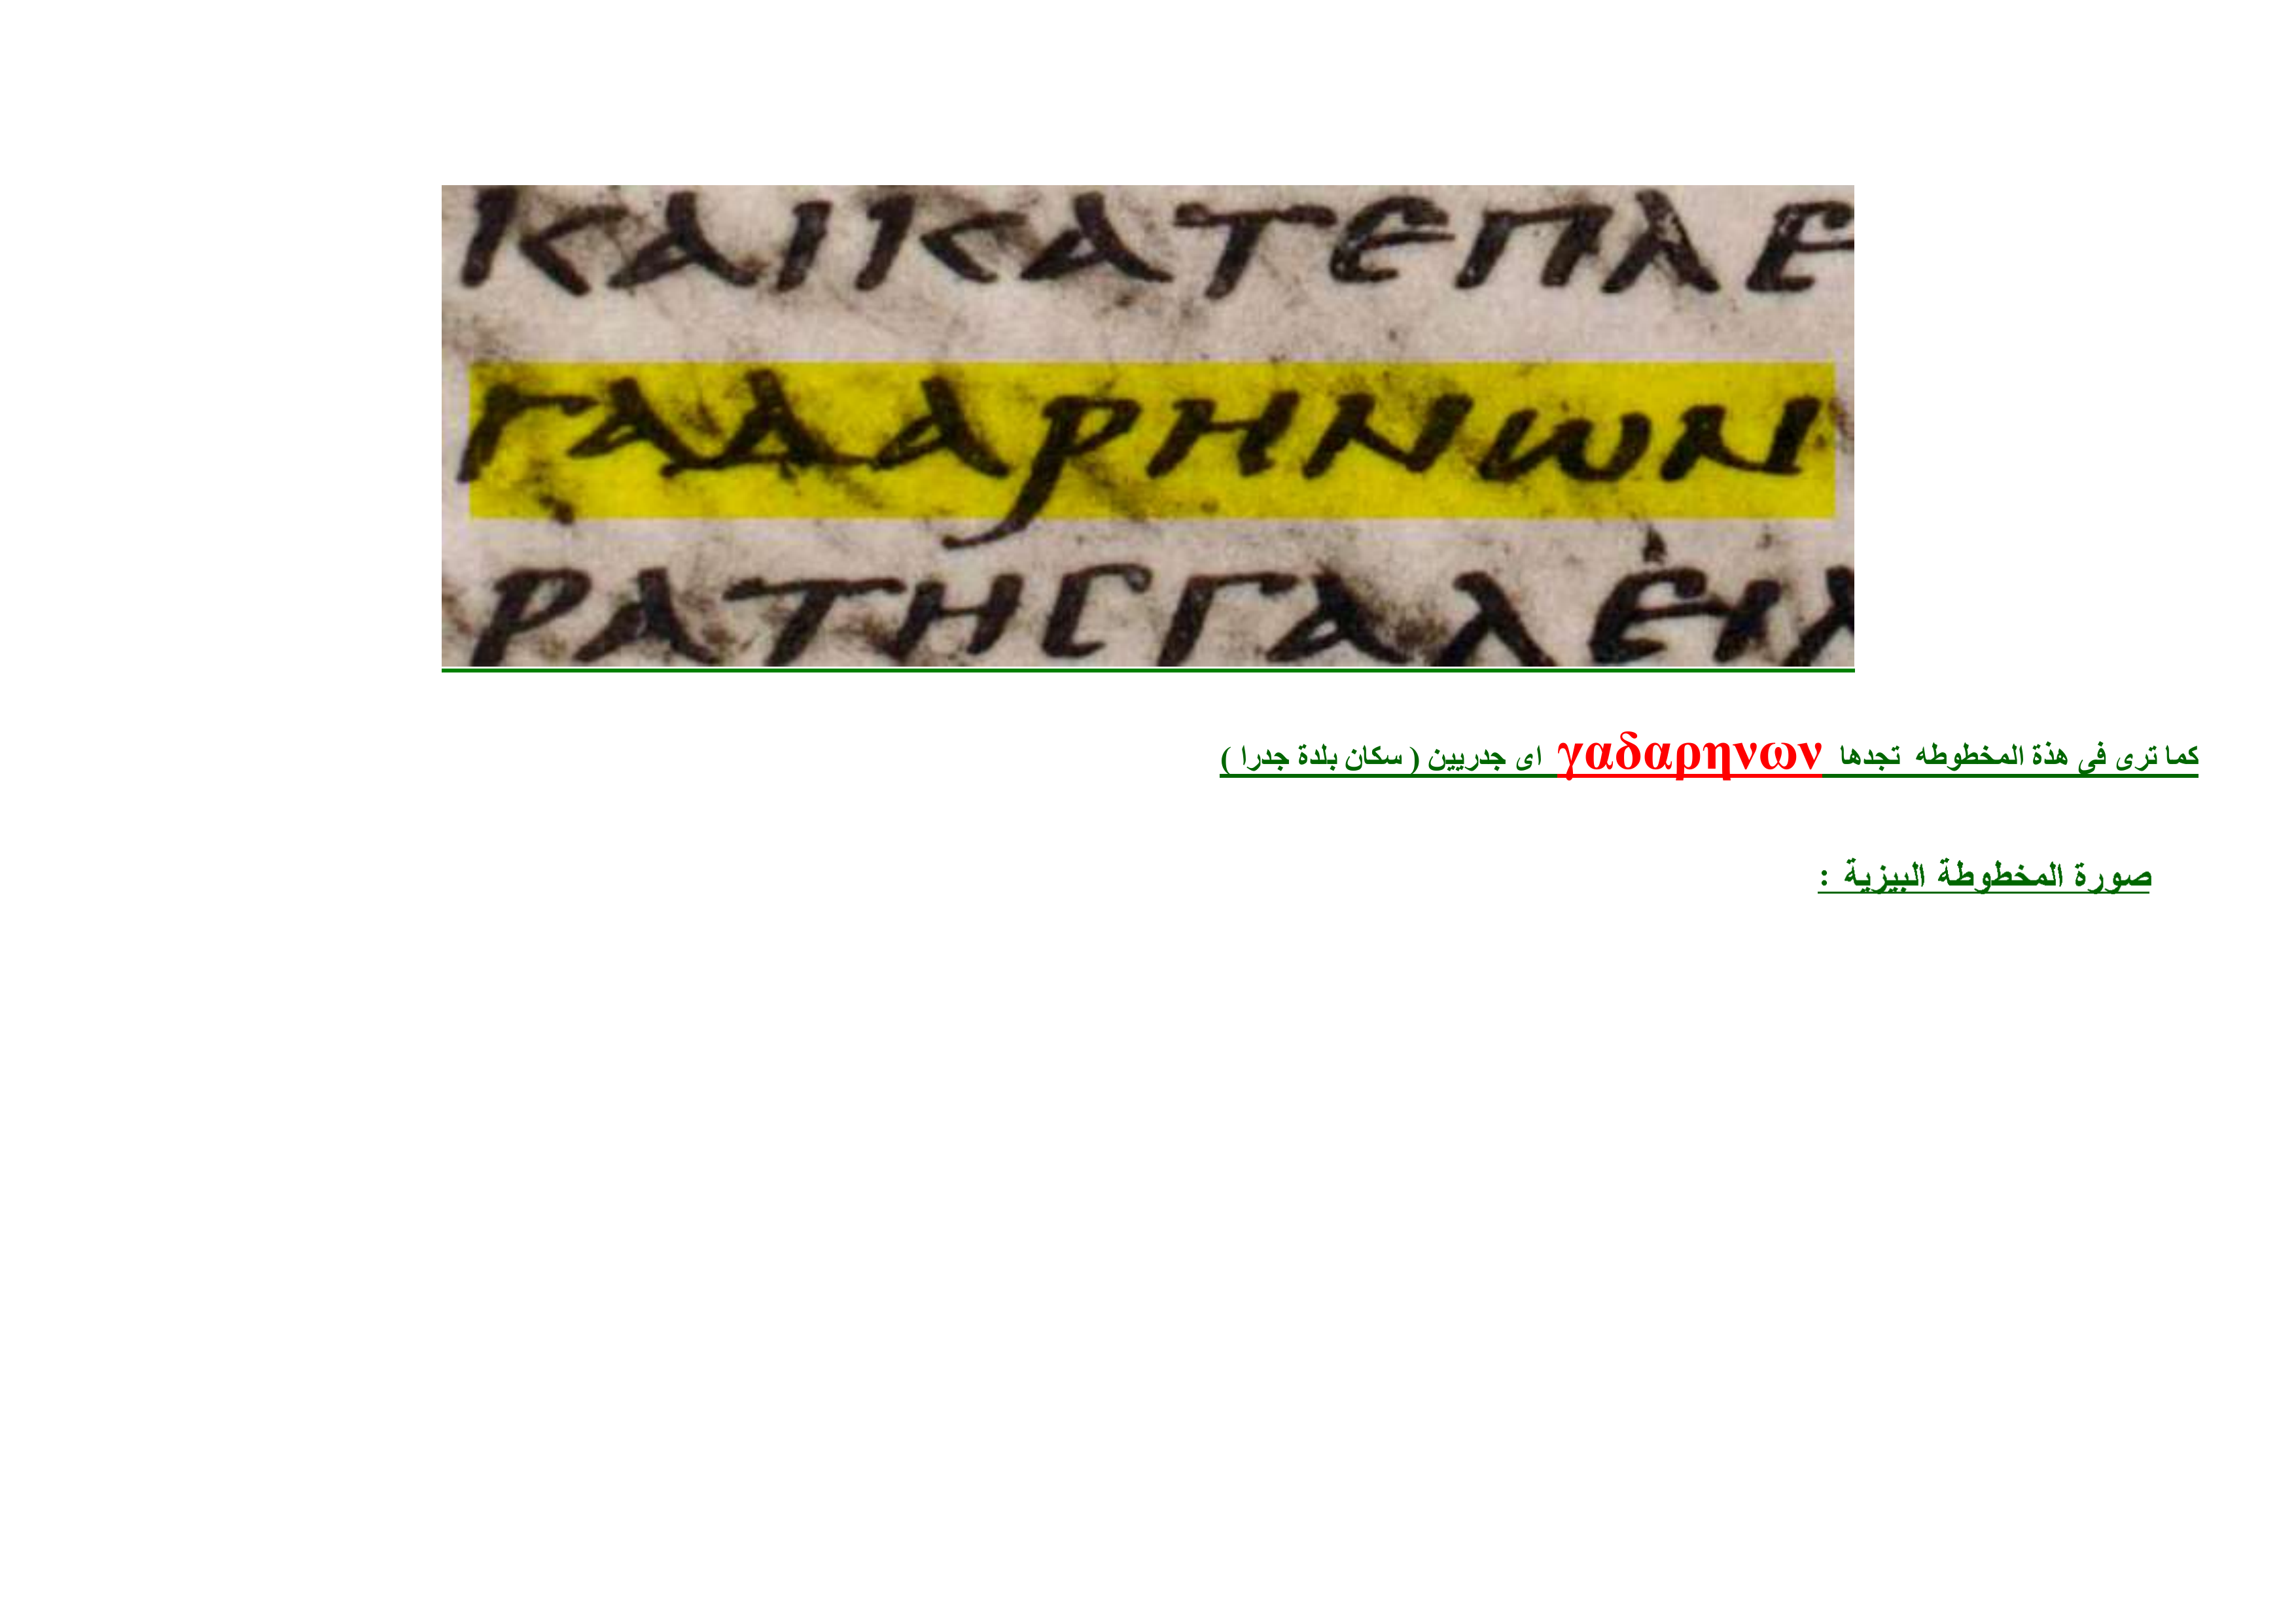 ΚΑΙΚΑΤΕΠΛΕ
ΓΑΔΑΡΗΝωΝ
ΡΑΤΗϹΓΑΛΕΙΛ
كما ترى فى هذة المخطوطه تجدها γαδαρηνων اى جدريين ( سكان بلدة جدرا )
صورة المخطوطة البيزية :